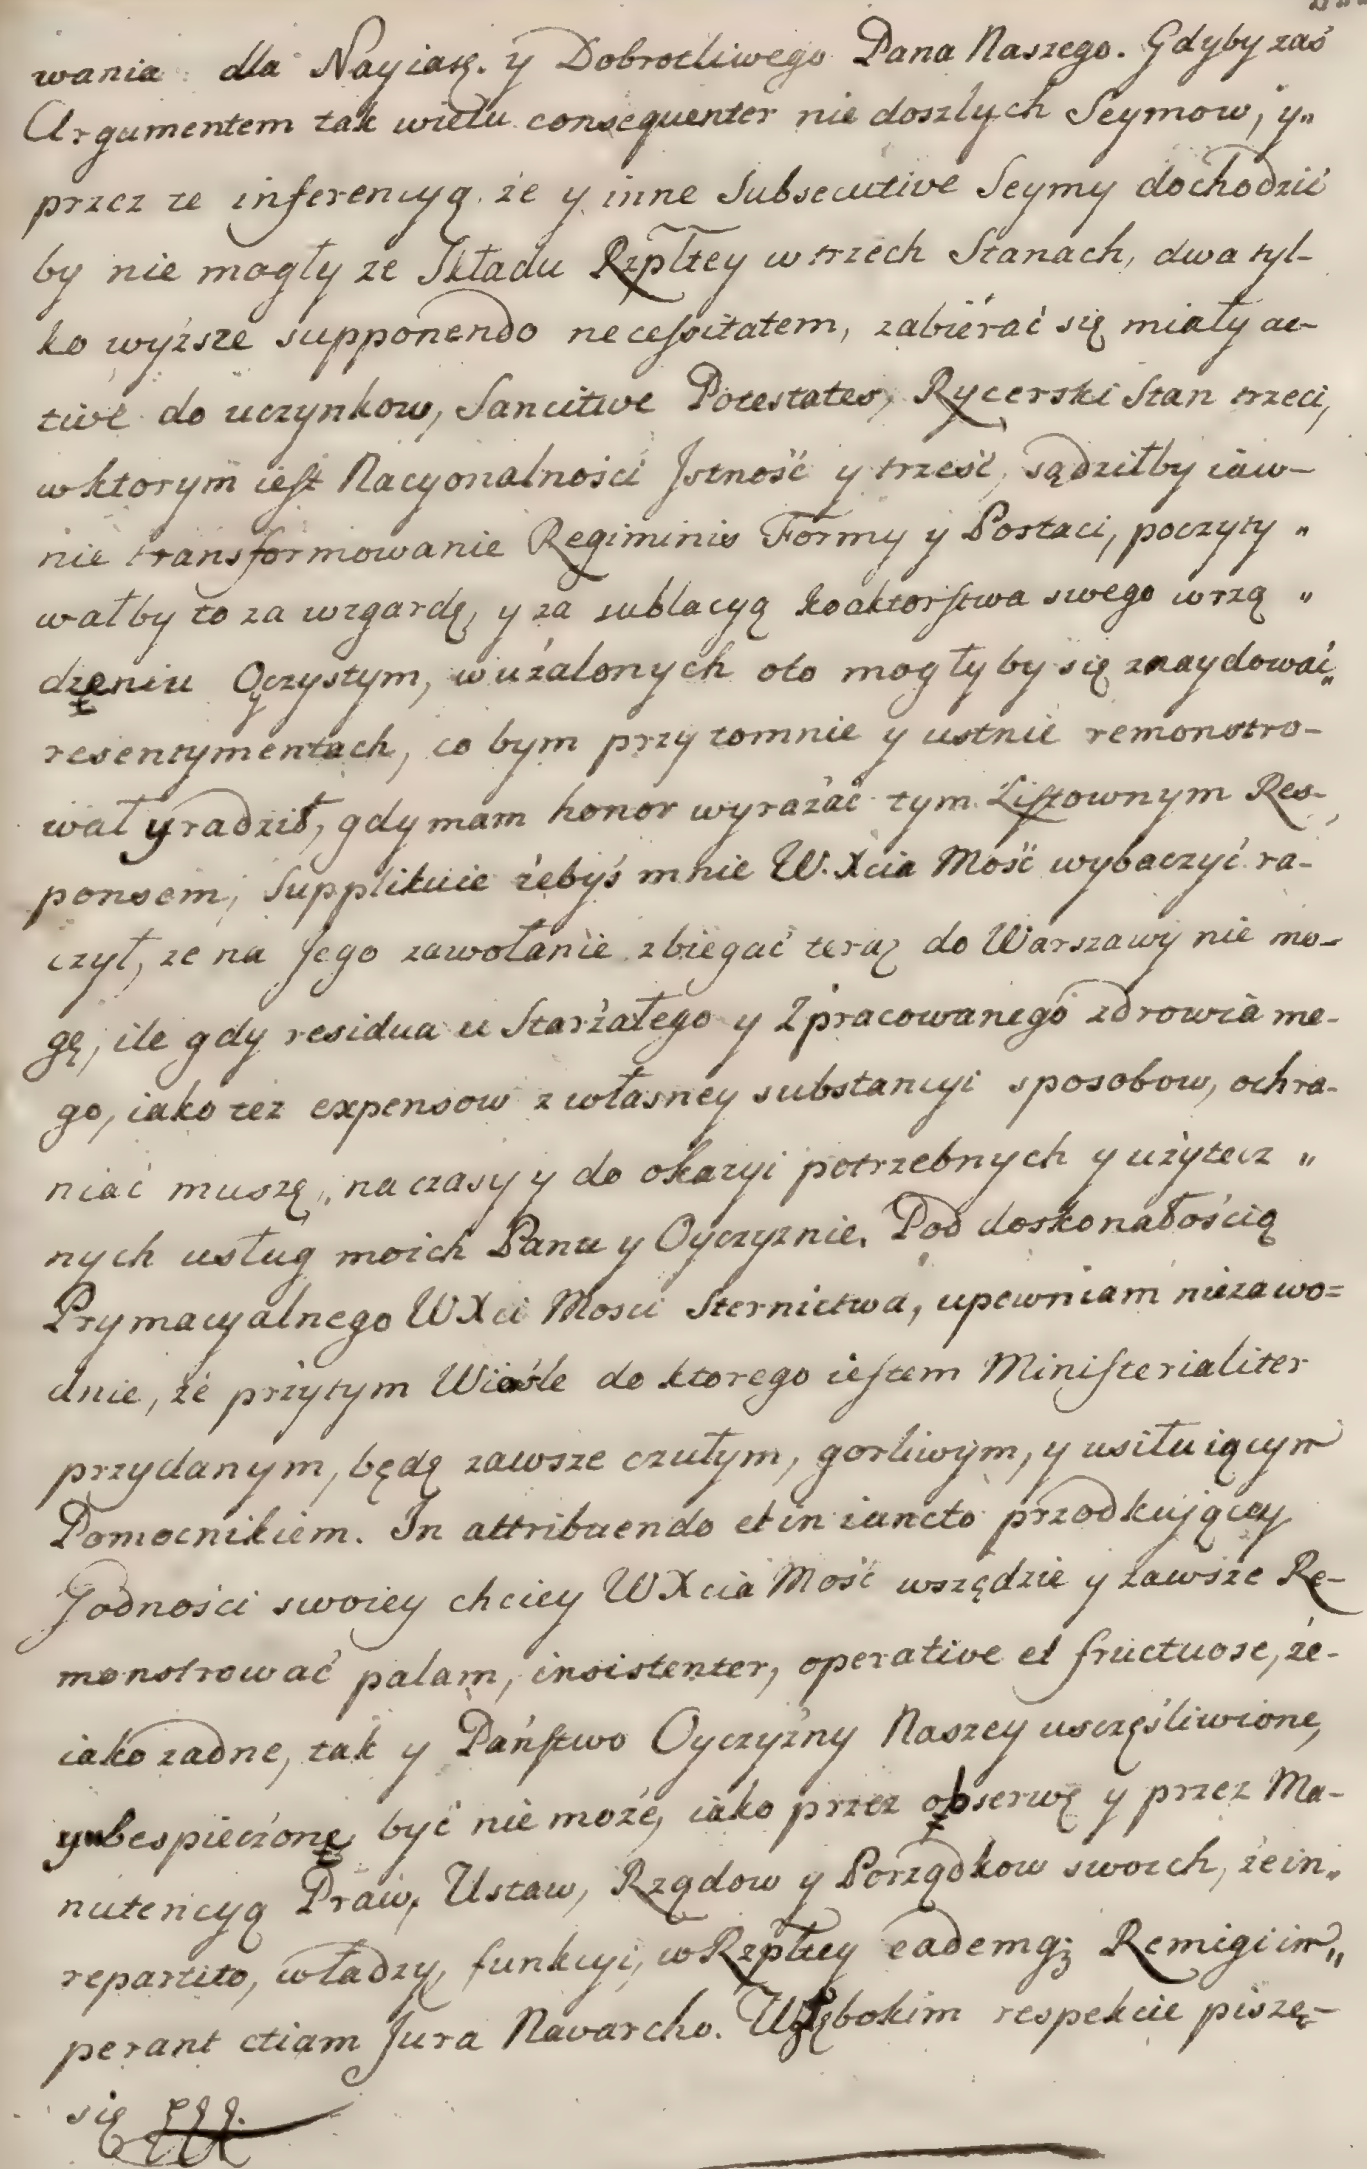 wania dla Nayiasz. y Dobrotliwego Pana Naszego. Gdyby zaś
Argumentem tak wielu consequenter nie doszłych Seymow, y„
przez te inferencyą że y inne Subsecutive Seymy dochodzić
by nie mogły ze Składu Rzpltey w trzech Stanach, dwa tyl-
ko wyższe supponendo necessitatem, zabiérać się miały ac-
tivé do uczynkow, Sancitivé Potestates, Rycerski Stan trzeci,
w ktorym iest Nacyonalności Jstność y treść, sądziłby iaw-
nie transformowanie Regiminis Formy y Postaci, poczyty„
wałby to za wzgardę, y za sublacyą koaktorstwa swego w rzą„
dzeniu Oyczystym, w użalonych oto mogły by się znaydować„
resentymentach, co bym przytomnie y ustnie remonstro-
wał y radził, gdy mam honor wyrażać tym Listownym Res-
ponsem, Supplikuie żebyś mnie W. Xcia Mość wybaczyć ra-
czył, że na Jego zawołanie zbiegać teraz do Warszawy nie mo-
gę, ile gdy residua u Starzałego y Zpracowanego zdrowia me-
go, iako też expensow z własney substancyi sposobow, ochra-
niać muszę, na czasy y do okazyi potrzebnych y użytecz„
nych usług moich Panu y Oyczyznie. Pod doskonałością
Prymacyalnego WXci Mosci Sternictwa, upewniam niezawo=
dnie, że przytym Wiośle do ktorego iestem Ministerialiter
przydanym, będę zawsze czułym, gorliwym, y usiłuiącym
Pomocnikiem. In attribuendo et in iuncto przodkującey
Godności swoiey chciey WXcia Mość wszędzie y zawsze Re-
monstrować palam, insistenter, operative et fructuose, że-
iako żadne, tak y Państwo Oyczyzny Naszey uszczęśliwione,
y ubespieczone być nie może, iako przez obserwę y przez Ma-
nutencyą Praw, Ustaw, Rządow y Porządkow swoich, że in„
repartito, władzy, funkcyi, w Rzpltey eademqz Remigi im„
perant etiam Jura Navarcho. W głębokim respekcie piszę-
się